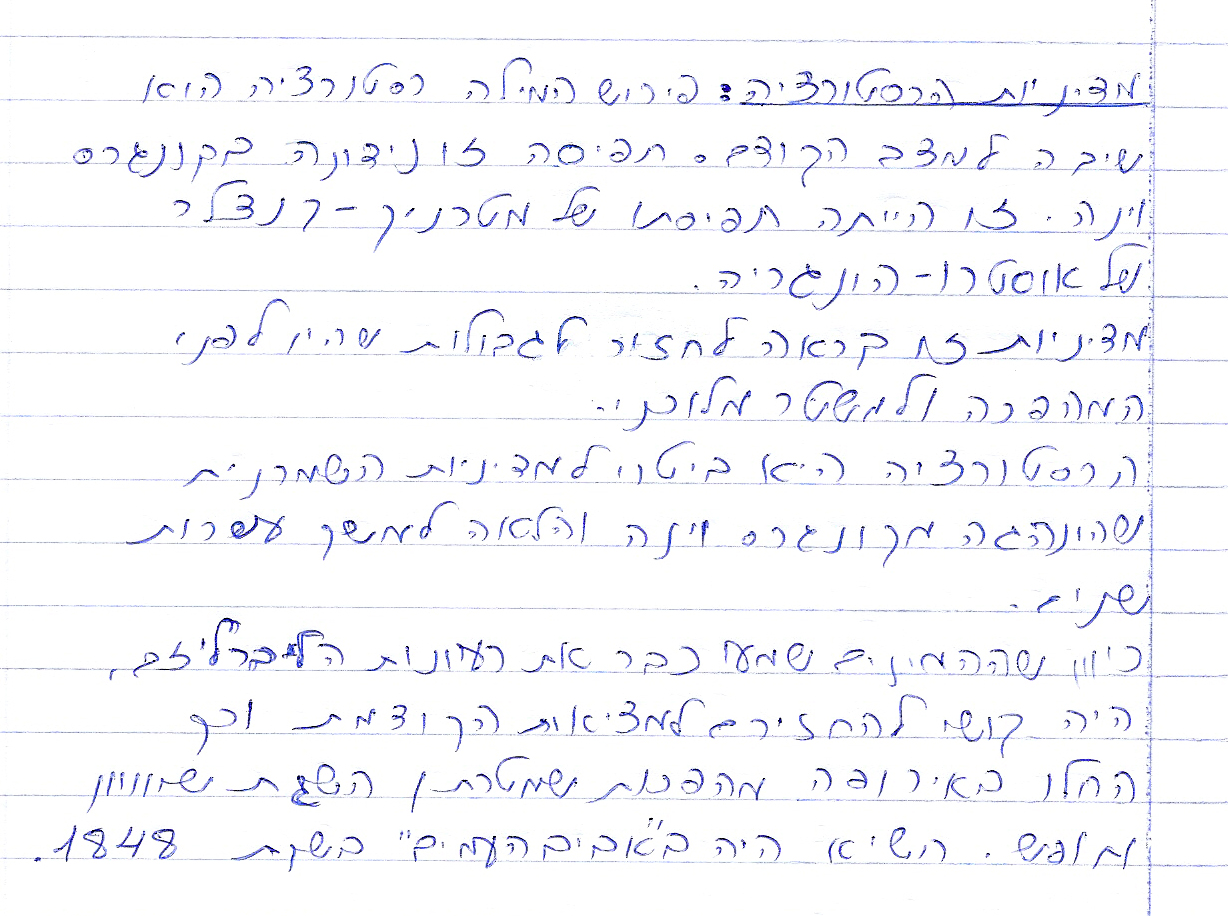 מדיניות הרסטורציה: פירוש המילה רסטורציה הוא
שיבה למצב הקודם. תפיסה זו נידונה בקונגרס
וינה. זו הייתה תפיסתו של מטרניך - קנצלר
של אוסטרו-הונגריה.
מדיניות זו קראה לחזור לגבולות שהיו לפני
המהפכה ולמשטר מלוכני.
הרסטורציה היא ביטוי למדיניות השמרנית
שהונהגה מקונגרס וינה והלאה למשך עשרות
שנים.
כיוון שההמונים שמעו כבר את רעיונות הליברליזם,
היה קושי להחזירם למציאות הקודמת וכך
החלו באירופה מהפכות שמטרתן השגת שוויון
וחופש. השיא היה ב"אביב העמים" בשנת 1848.